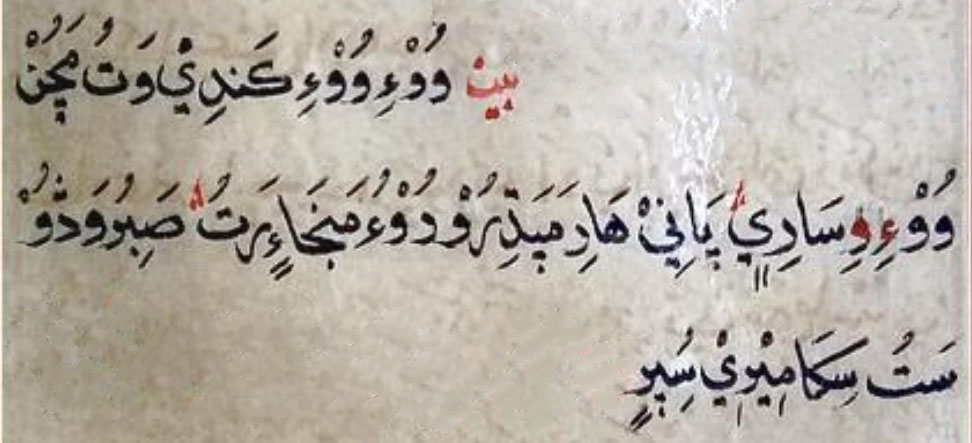 بيت وُوْءِ وُوْءِ كَندِيْ وَتُ مَڃُنْ
وُوْءِ وِسَارِيِ پَانِيْ هَارِ مَپَڌِرُوْ دُوْءُ مَنجَاءٍرَتُ صَبِرُوَدُّوُ
سَتُ سِكَا مِيْرِيْ سُپِرٍ